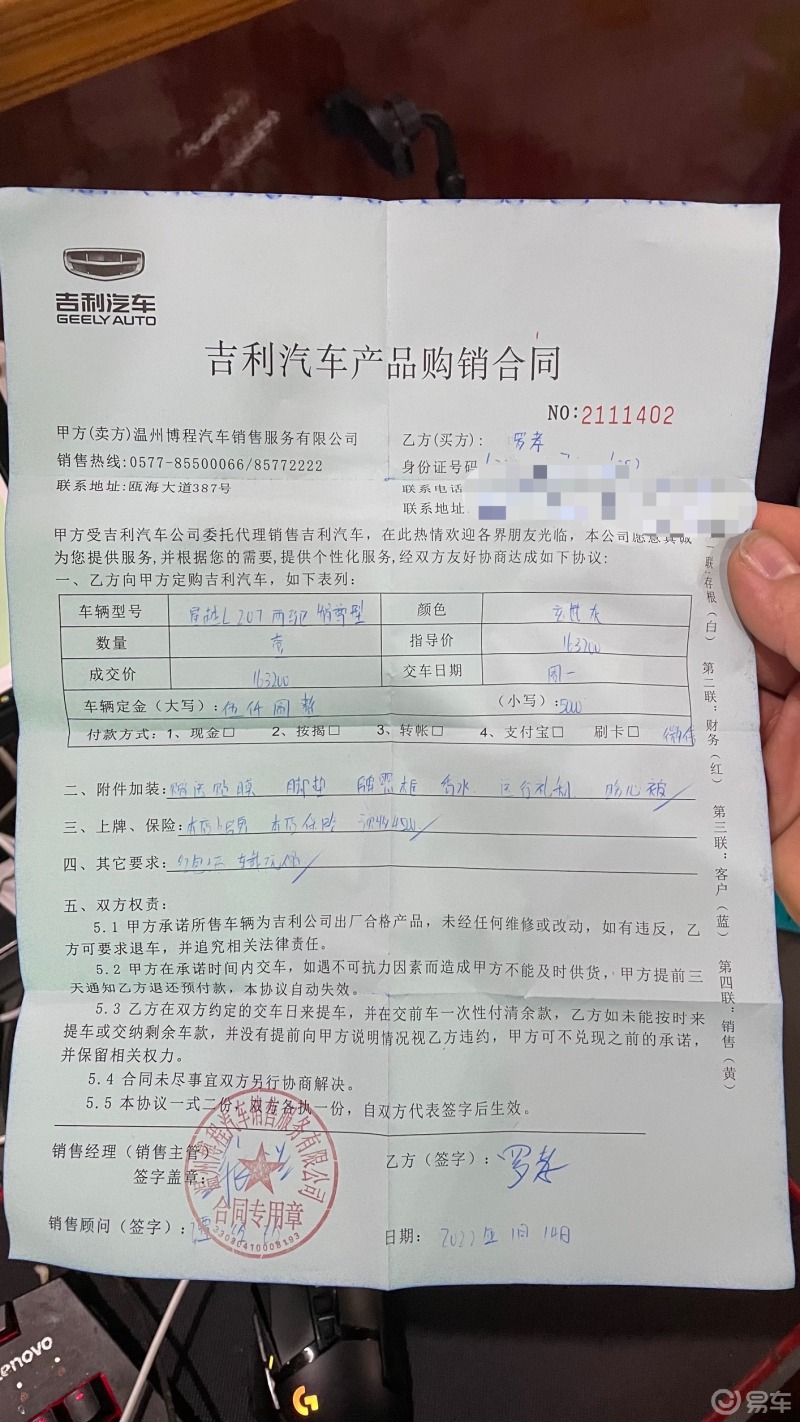 吉利汽车
GEELY AUTO
吉利汽车产品购销合同
NO:2111402
甲方(卖方)温州博程汽车销售服务有限公司
乙方(买方):
销售热线:0577-85500066/85772222
身份证号码
联系地址:瓯海大道387号
联系电话
联系地址:
甲方受吉利汽车公司委托代理销售吉利汽车，在此热情欢迎各界朋友光临，本公司愿意真诚
为您提供服务,并根据您的需要,提供个性化服务,经双方友好协商达成如下协议:
一、乙方向甲方定购吉利汽车，如下表列:
车辆型号 星越L 2.0T 两驱 颜色
数量 壹 指导价 163200
成交价 163200 交车日期 周一
车辆定金（大写）: 伍仟圆整 （小写）: 5000
付款方式: 1、现金□ 2、按揭□ 3、转帐□ 4、支付宝□ 刷卡□ 微信
二、附件加装: 赠送贴膜 脚垫 牌照框 香水
三、上牌、保险: 本店上牌 本店保险
四、其它要求:
五、双方权责:
5.1 甲方承诺所售车辆为吉利公司出厂合格产品，未经任何维修或改动，如有违反，乙
方可要求退车，并追究相关法律责任。
5.2 甲方在承诺时间内交车，如遇不可抗力因素而造成甲方不能及时供货，甲方提前三
天通知乙方退还预付款，本协议自动失效。
5.3 乙方在双方约定的交车日来提车，并在交前车一次性付清余款，乙方如未能按时来
提车或交纳剩余车款，并没有提前向甲方说明情况视乙方违约，甲方可不兑现之前的承诺，
并保留相关权力。
5.4 合同未尽事宜双方另行协商解决。
5.5 本协议一式二份，双方各执一份，自双方代表签字后生效。
销售经理（销售主管）
签字盖章:
乙方（签字）:
销售顾问（签字）:
日期: 2022年1月14日
温州博程汽车销售服务有限公司
合同专用章
联:存根（白）
第二联:财务（红）
第三联:客户（蓝）
第四联:销售（黄）
Lenovo
易车